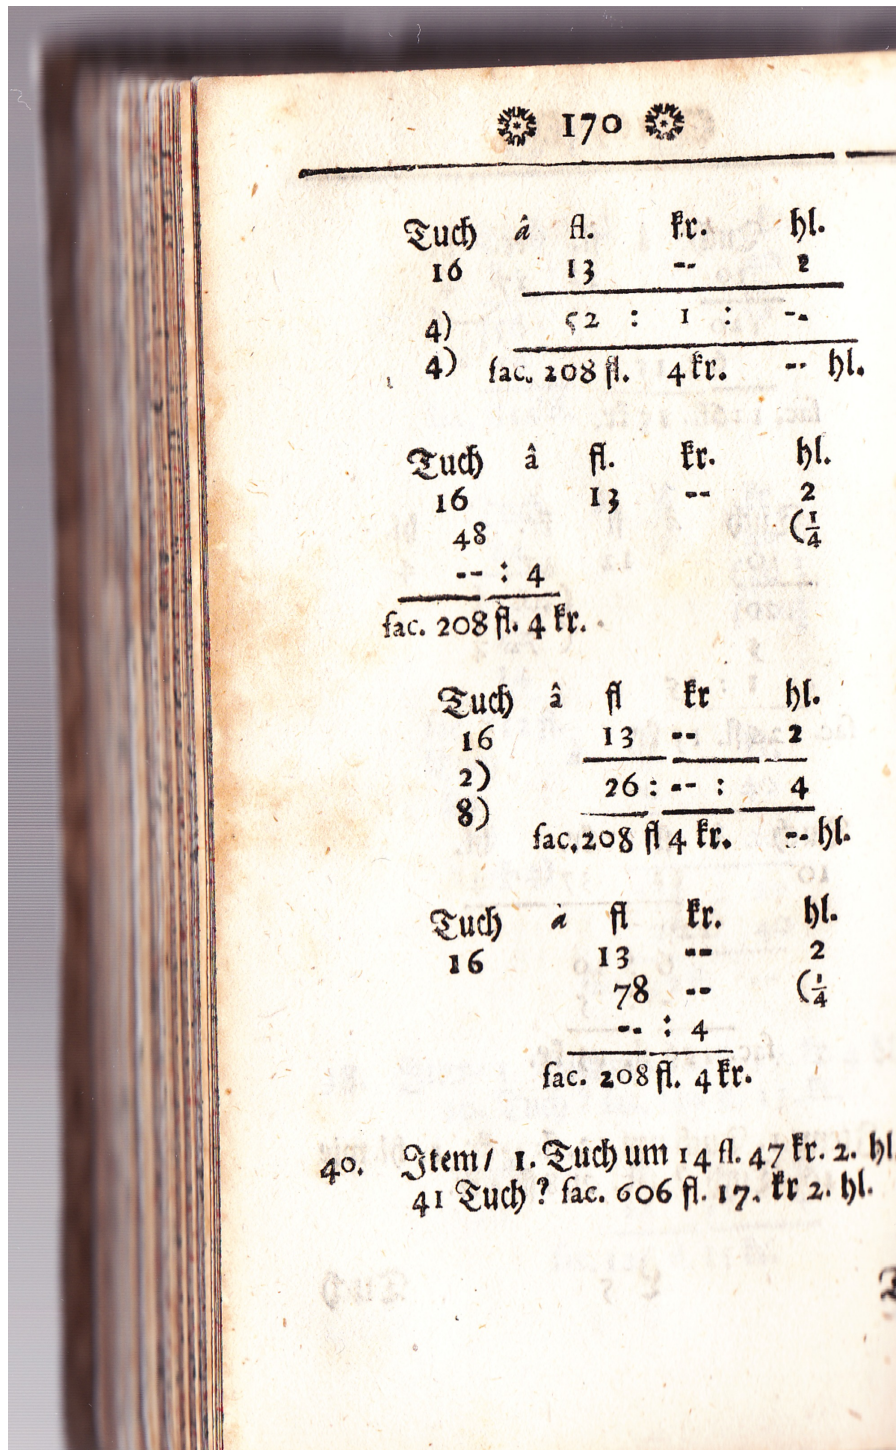 170
Tuch â fl. kr. hl.
16 13 -- 2
4) 52 : 1 : --
4) fac. 208 fl. 4 kr. -- hl.
Tuch â fl. kr. hl.
16 13 -- 2
48 (1/4
-- : 4
fac. 208 fl. 4 kr.
Tuch â fl kr hl.
16 13 -- 2
2) 26 : -- : 4
8) fac. 208 fl 4 kr. -- hl.
Tuch à fl kr. hl.
16 13 -- 2
78 -- (1/4
-- : 4
fac. 208 fl. 4 kr.
40. Item / 1. Tuch um 14 fl. 47 kr. 2. hl
41 Tuch ? fac. 606 fl. 17. kr 2. hl.